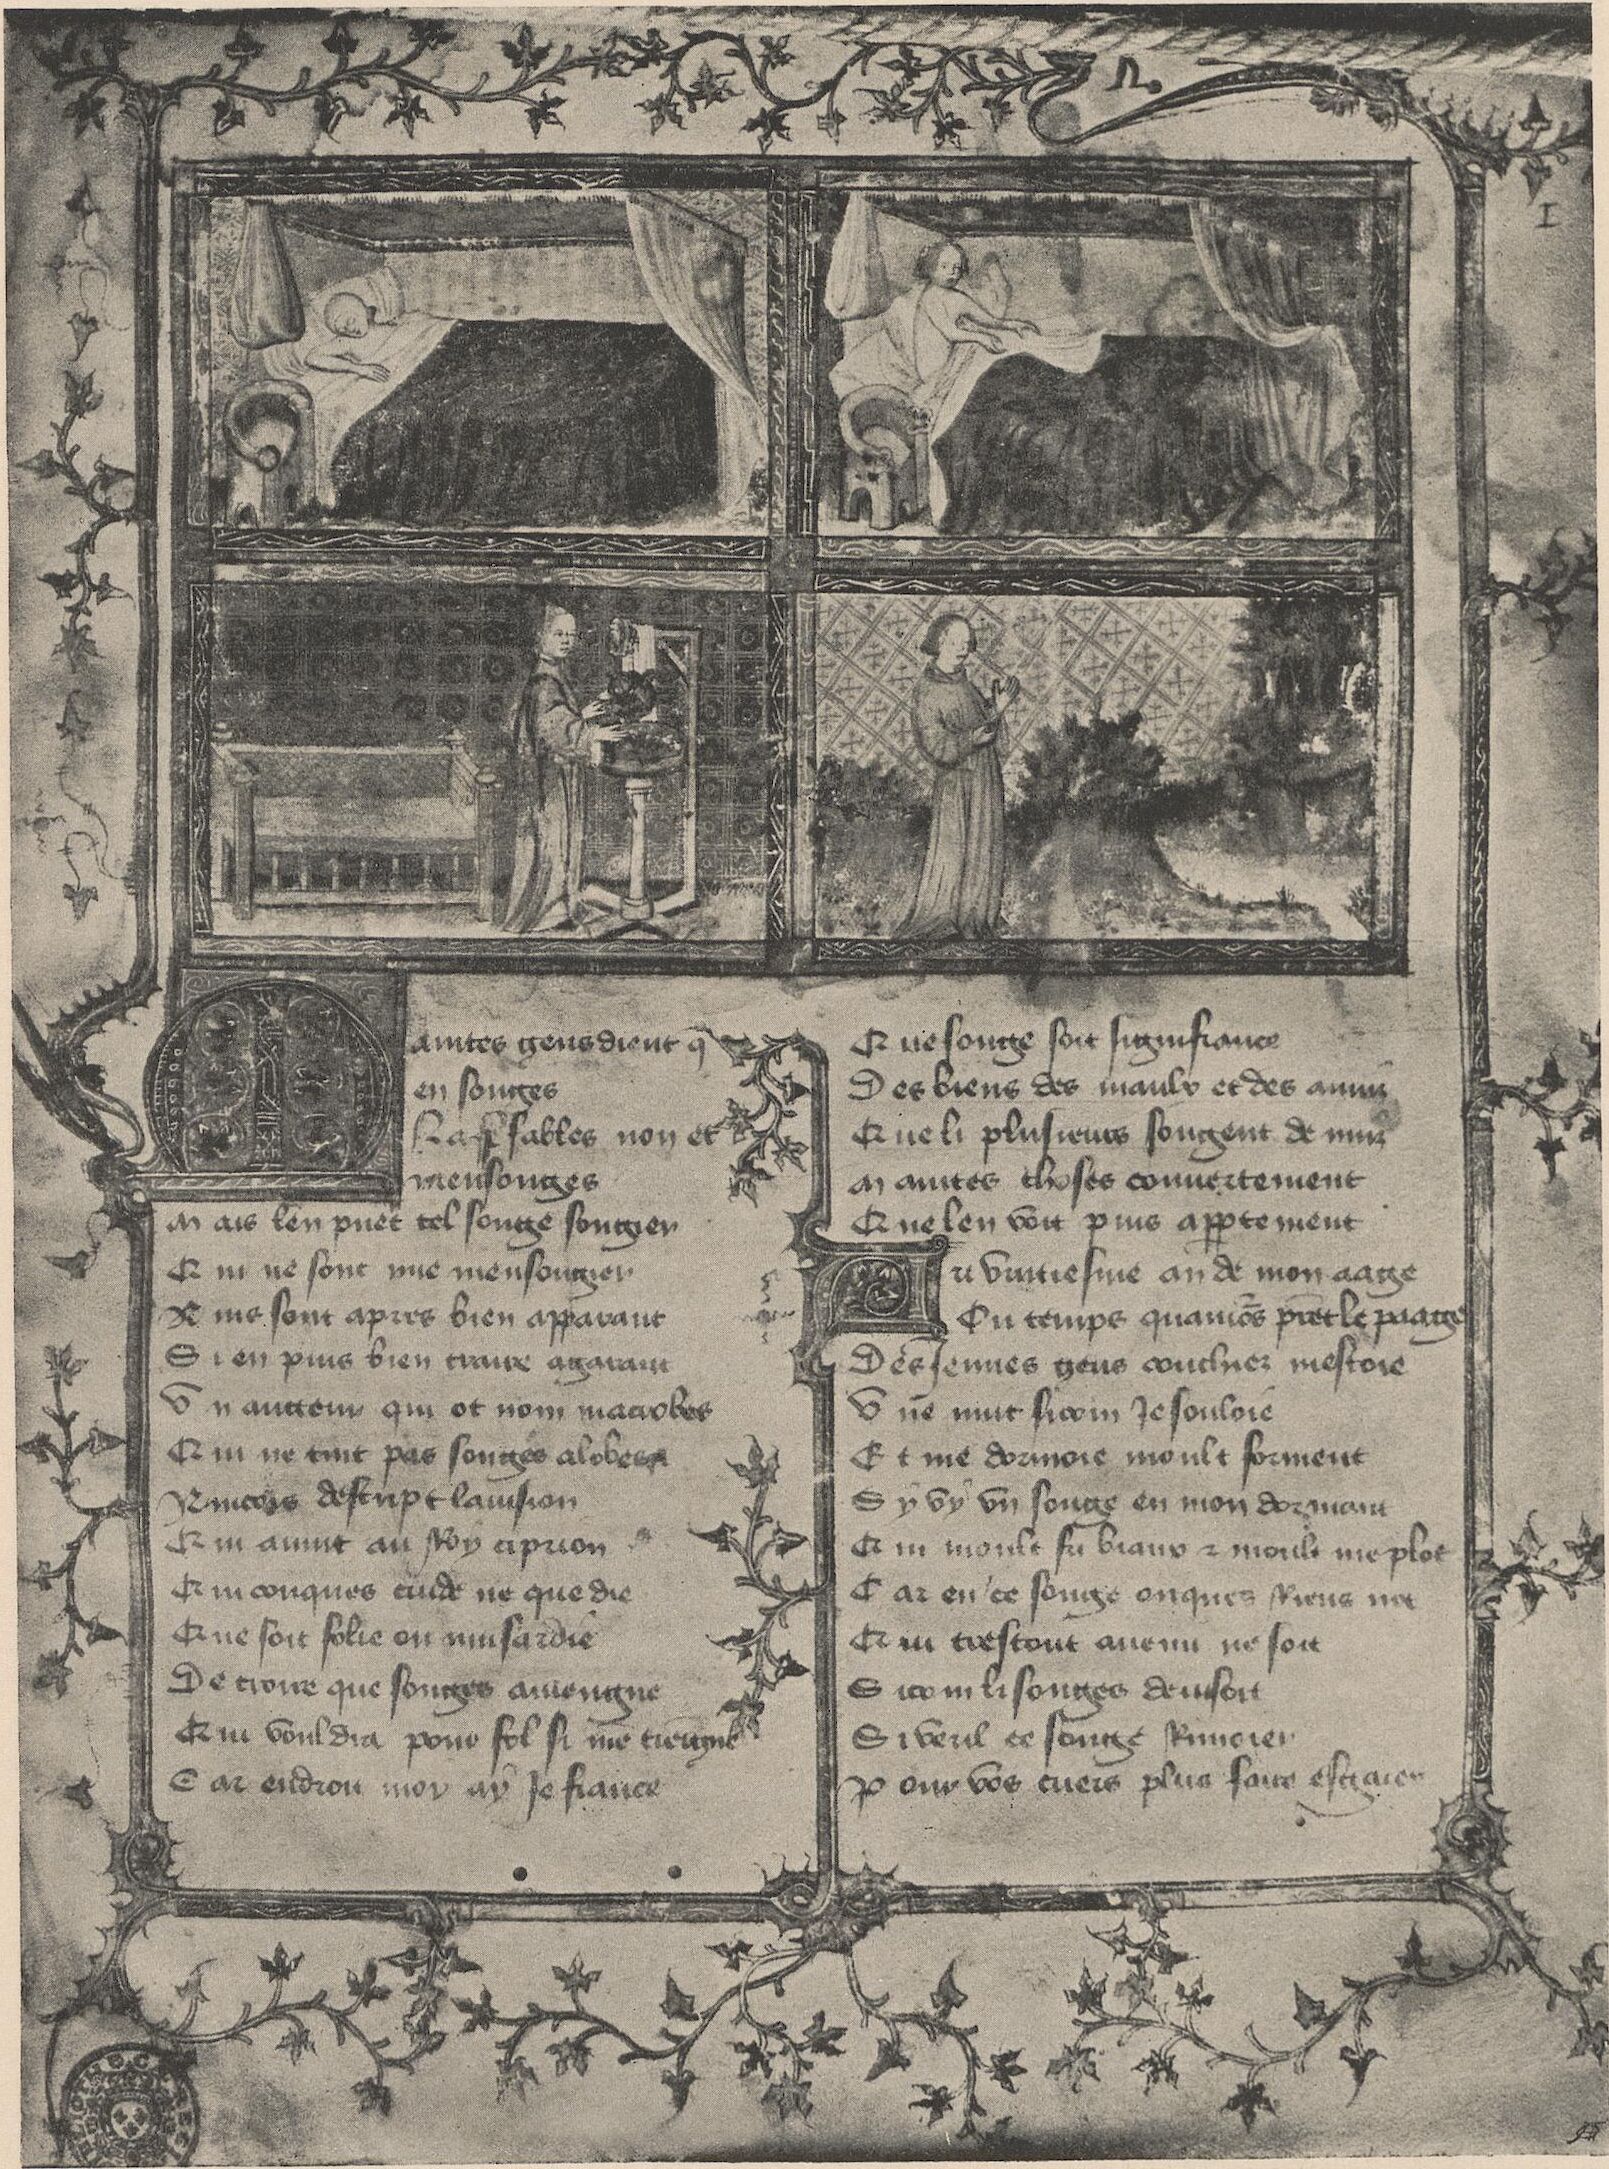 Maintes gens dient q̃
en songes
Na se fables non et
mensonges
Mais len puet tel songe songier
Qui ne sont mie mensongier
Ains sont apres bien apparant
Si en puis bien traire a garant
Vn aucteur qui ot nom macrobes
Qui ne tint pas songes a lobes
Aincois descript lauision
Qui auint au Roy ciprion
Quiconques cuide ne que die
Que soit folie ou musardie
De croire que songes auiengne
Qui vouldra pour fol si me tiengne
Car endroit moy ay Je fiance
Que songe soit signifiance
Des biens des maulx et des anuis
Que li plusieurs songent de nuis
Maintes choses couuertement
Que len voit puis appertement
Au vintiesme an de mon aage
Ou temps quamors prent le paage
Des Jeunes gens couchiez mestoie
Vne nuit sicom Je souloie
Et me dormoie moult forment
Sy vy vn songe en mon dormant
Qui moult fu biaux et moult me plot
Car en ce songe onques Riens not
Qui trestout auenu ne soit
Sicom li songes deuisoit
Si veul ce songe Rimoier
Pour vos cuers plus faire esgaier